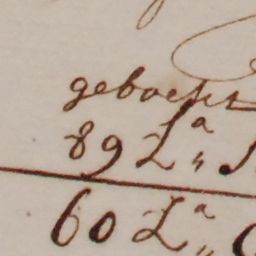 geboekt
89 Lª „
60 Lª „